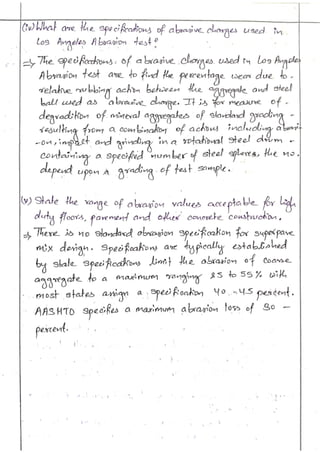 (iv) What are the specifications of abrasive charges used in
Los Angeles Abrasion test?
⇒ The specifications of abrasive charges used in Los Angeles
Abrasion test are to find the percentage wear due to -
relative rubbing action between the aggregate and steel
ball used as abrasive charge. It is for measure of -
degradation of mineral aggregates of standard grading -
resulting from a combination of actions including abrasi-
-on, impact and grinding in a rotational steel drum -
containing a specified number of steel spheres, the no.
depend upon a grading of test sample.
(v) State the range of abrasion values acceptable for high
duty floors, pavement and other concrete construction.
⇒ There is no standard abrasion specification for superpave
mix design. Specifications are typically established
by state specifications limit the abrasion of coarse
aggregate to a maximum ranging 35 to 55% with
most states assign a specification 40 - 45 percent.
AASHTO specifies a maximum abrasion loss of 30 -
percent.